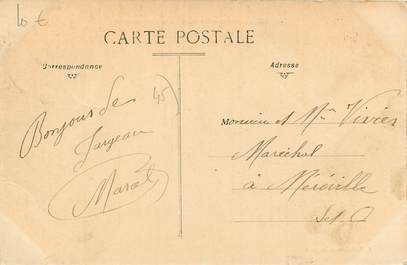 10 €
CARTE POSTALE
Correspondance
Adresse
45
Bonjour de
Jargeau
Marcel
Monsieur et Mme Vivier
Maréchal
à Méréville
S et O